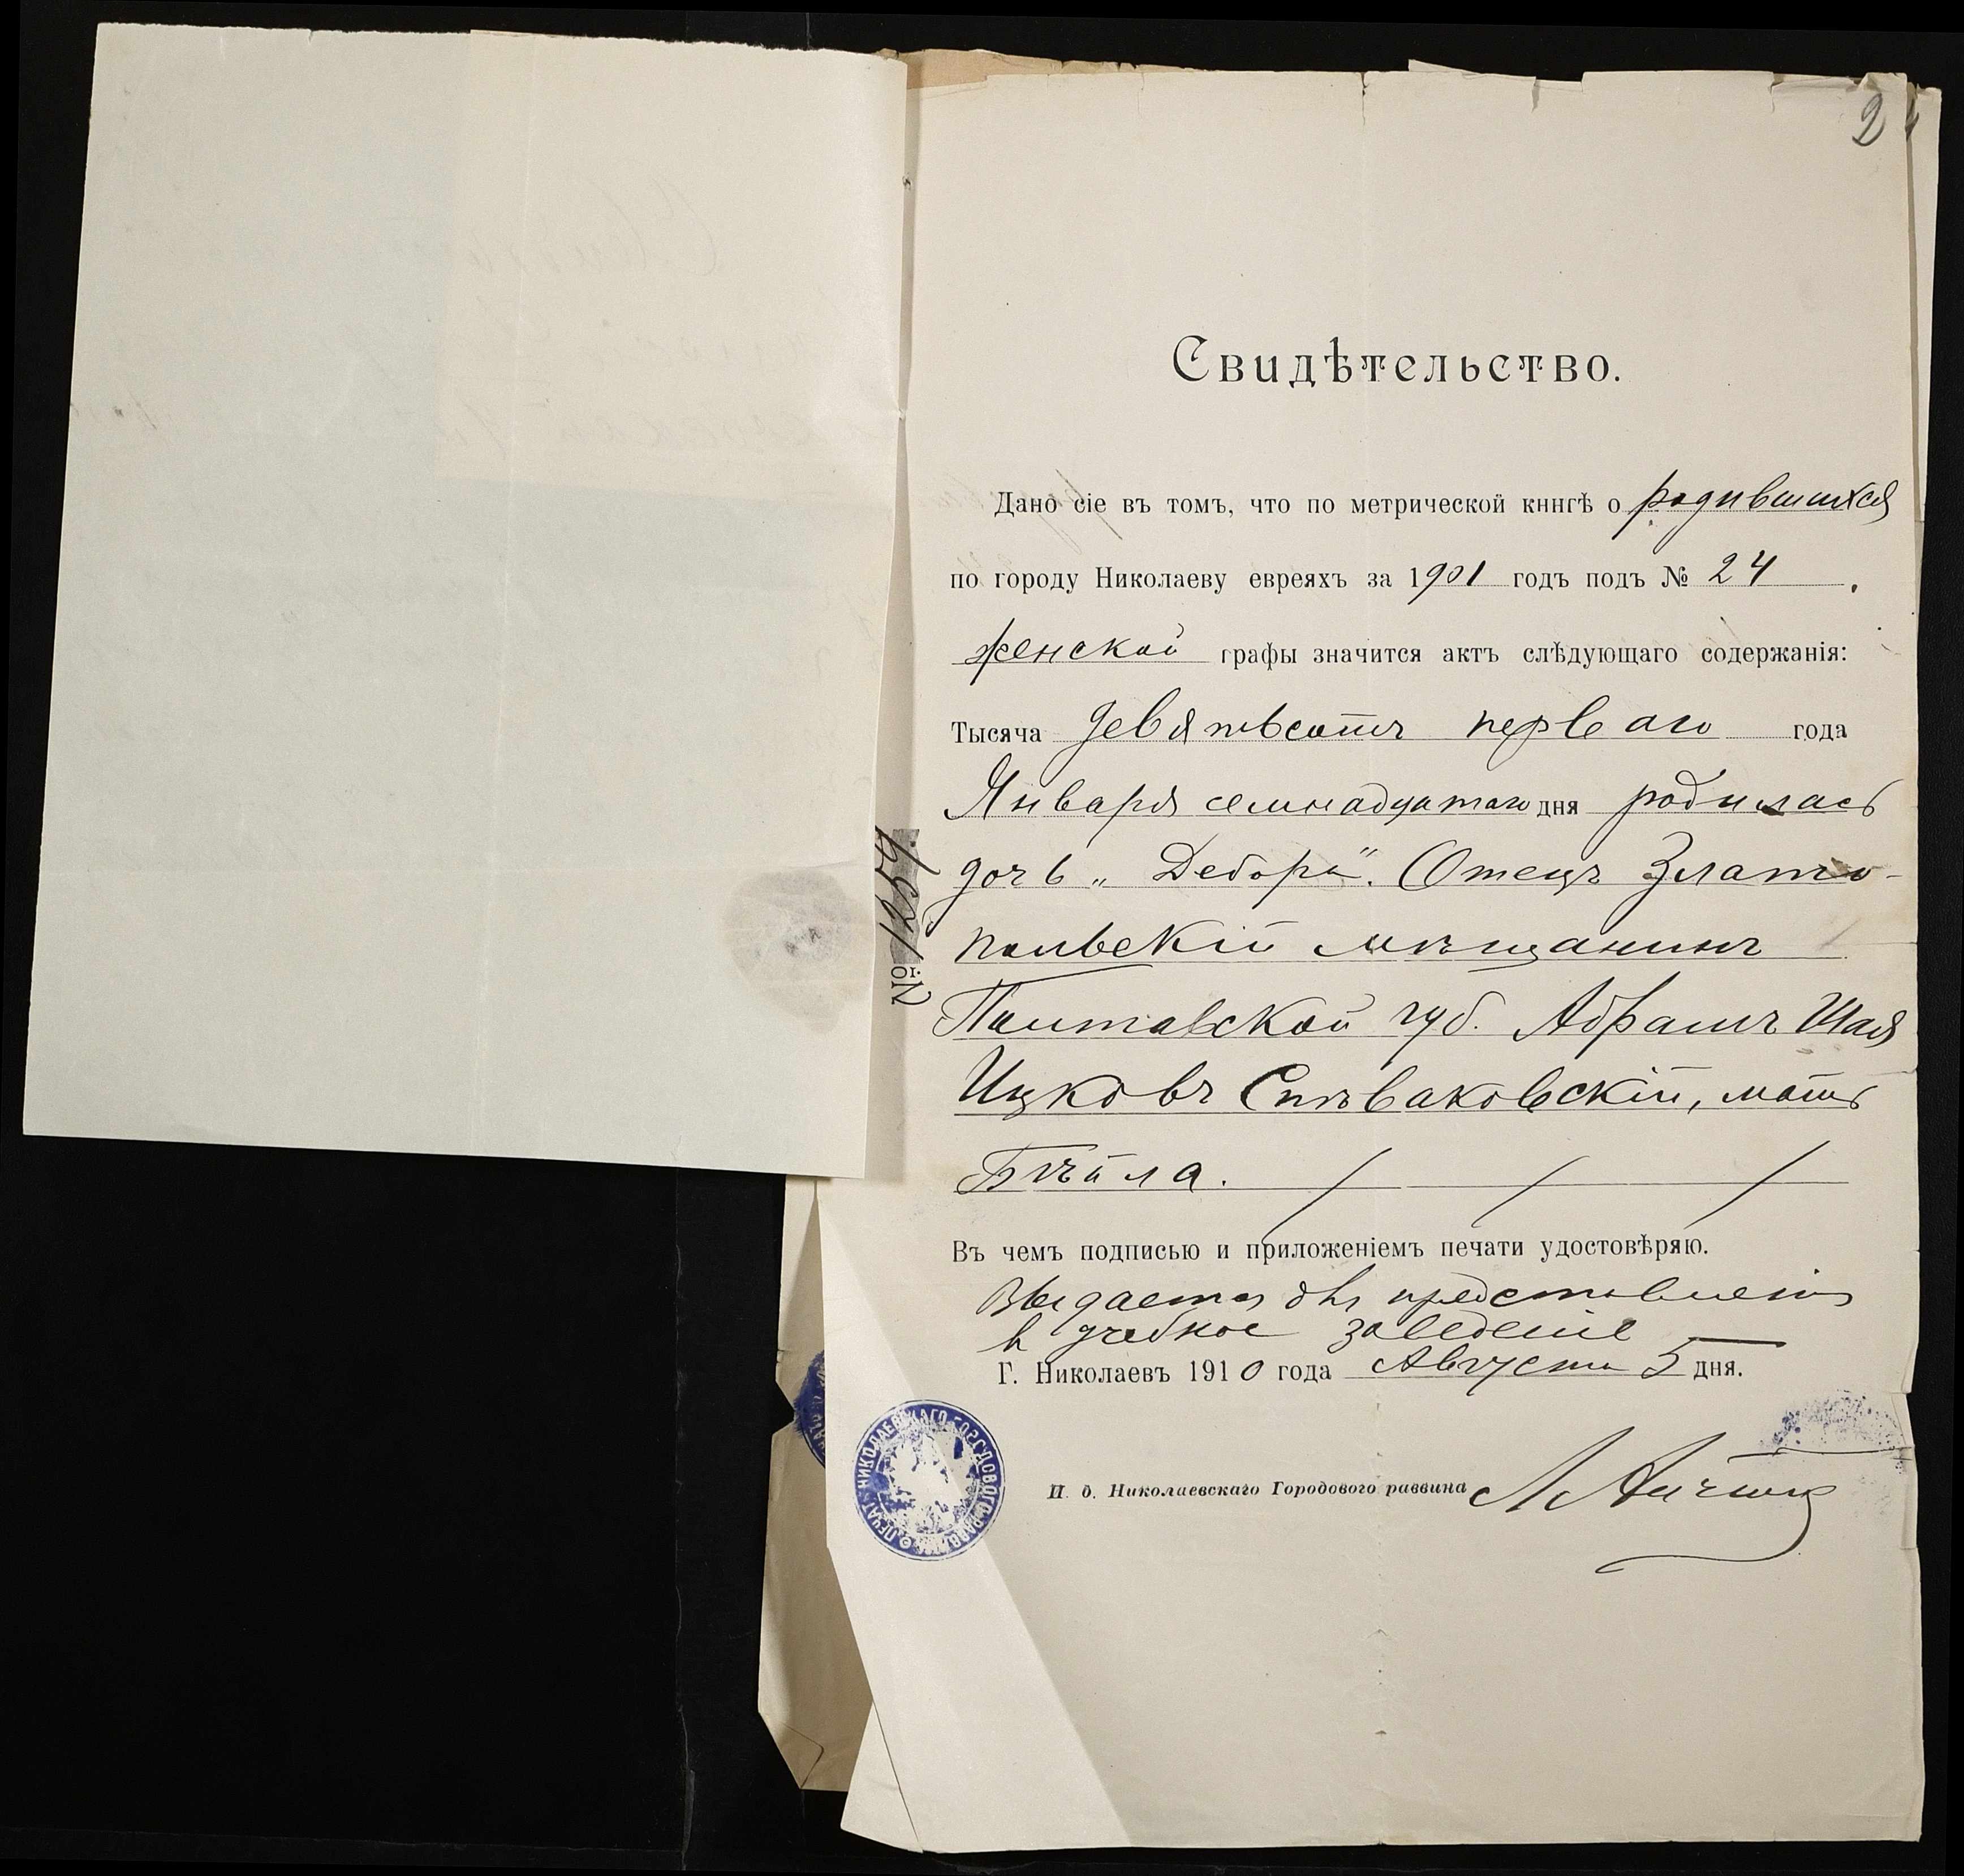 2
Свидѣтельство.
Дано сіе въ томъ, что по метрической книгѣ о родившихся
по городу Николаеву евреяхъ за 1901 годъ подъ № 24.
женской графы значится актъ слѣдующаго содержанія:
Тысяча девятьсотъ перваго года
Января семнадцатаго дня родилась
дочь „Дебора". Отецъ Злато-
польскій мѣщанинъ
Полтавской губ. Абрамъ Шая
Ицковъ Спѣваковскій, мать
Бѣйла.
Въ чемъ подписью и приложеніемъ печати удостовѣряю.
Выдается для представленія
в учебное заведеніе
Г. Николаевъ 1910 года Августа 5 дня.
И. д. Николаевскаго Городового раввина
ПЕЧАТЬ НИКОЛАЕВСКАГО ГОРОДОВОГО РАВВИНА
№ 1259